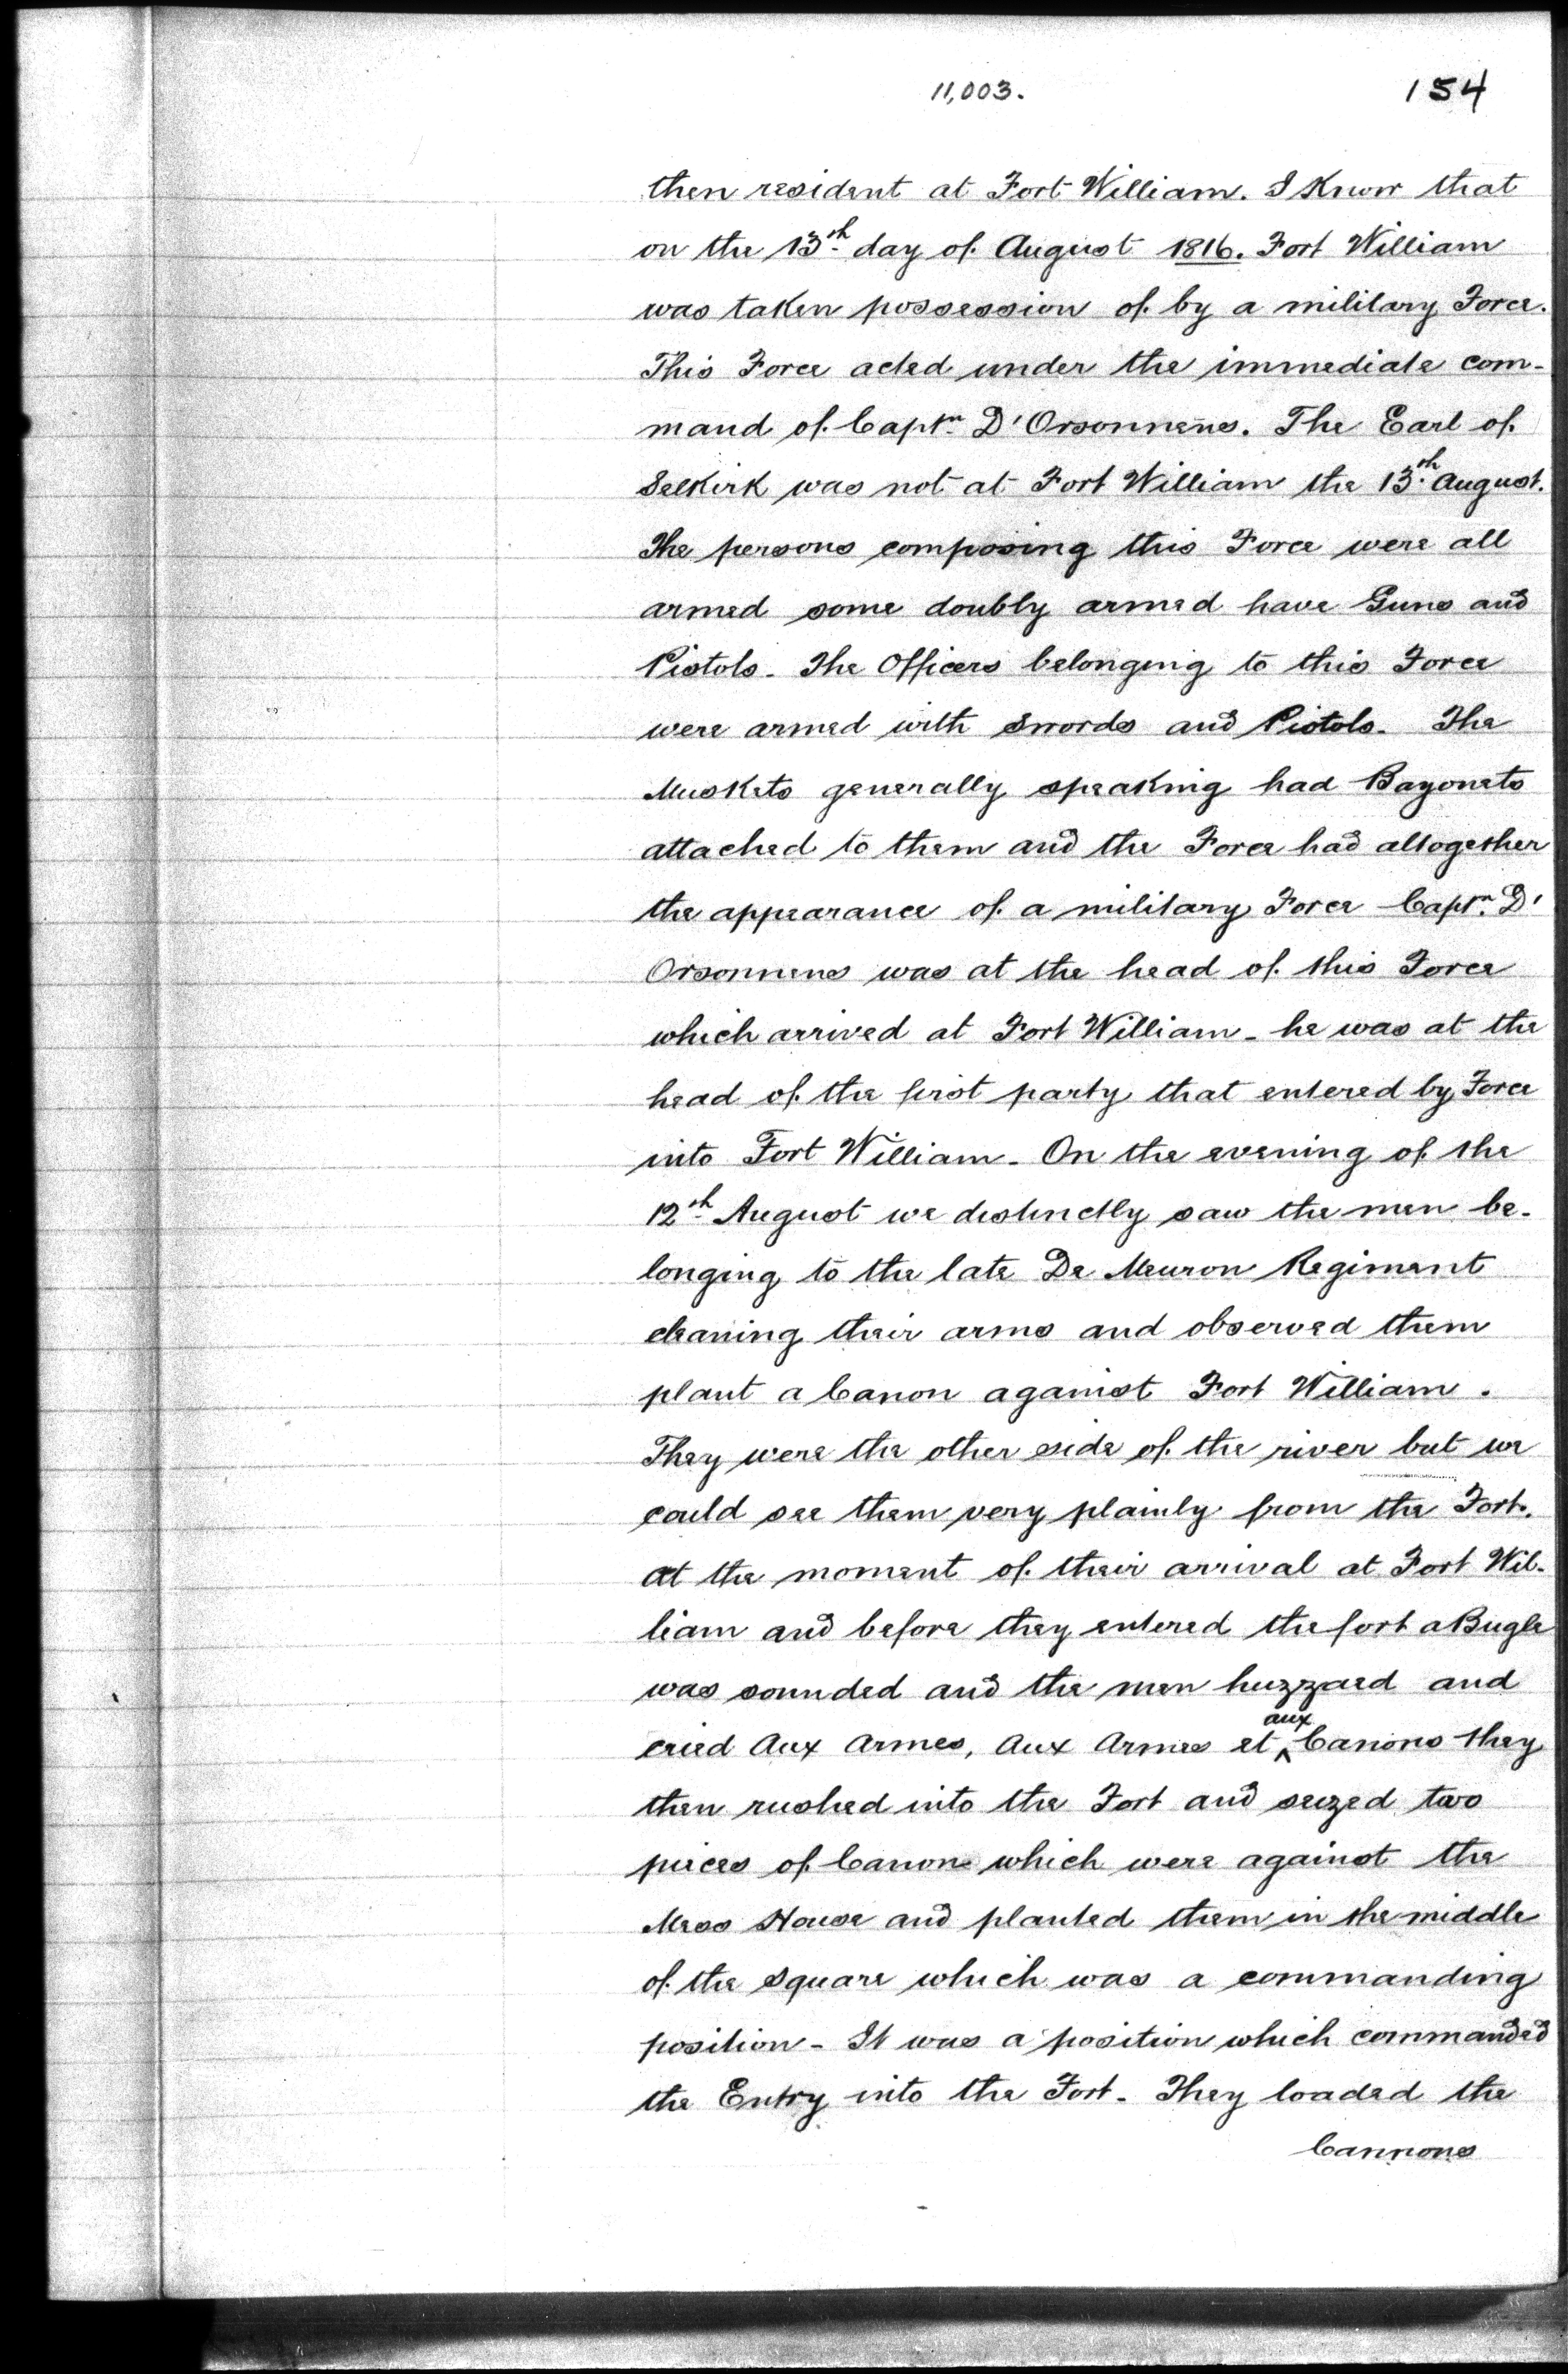 11,003.
154
then resident at Fort William. I Know that
on the 13th day of August 1816. Fort William
was taken possession of by a military Force.
This Force acted under the immediate com-
mand of Captn D'Orsonnens. The Earl of
Selkirk was not at Fort William the 13th August.
The persons composing this Force were all
armed some doubly armed have Guns and
Pistols. The Officers belonging to this Force
were armed with Swords and Pistols. The
Muskets generally speaking had Bayonets
attached to them and the Force had altogether
the appearance of a military Force Captn D'
Orsonnens was at the head of this Force
which arrived at Fort William - he was at the
head of the first party that entered by Force
into Fort William - On the evening of the
12th August we distinctly saw the men be-
longing to the late De Meuron Regiment
cleaning their arms and observed them
plant a Canon against Fort William.
They were the other side of the river but we
could see them very plainly from the Fort.
At the moment of their arrival at Fort Wil-
liam and before they entered the fort a Bugle
was sounded and the men huzzaed and
cried Aux Armes, Aux Armes et aux Canons they
then rushed into the Fort and seized two
pieces of Canon which were against the
Mess House and planted them in the middle
of the Square which was a commanding
position - It was a position which commanded
the Entry into the Fort - They loaded the
Cannons